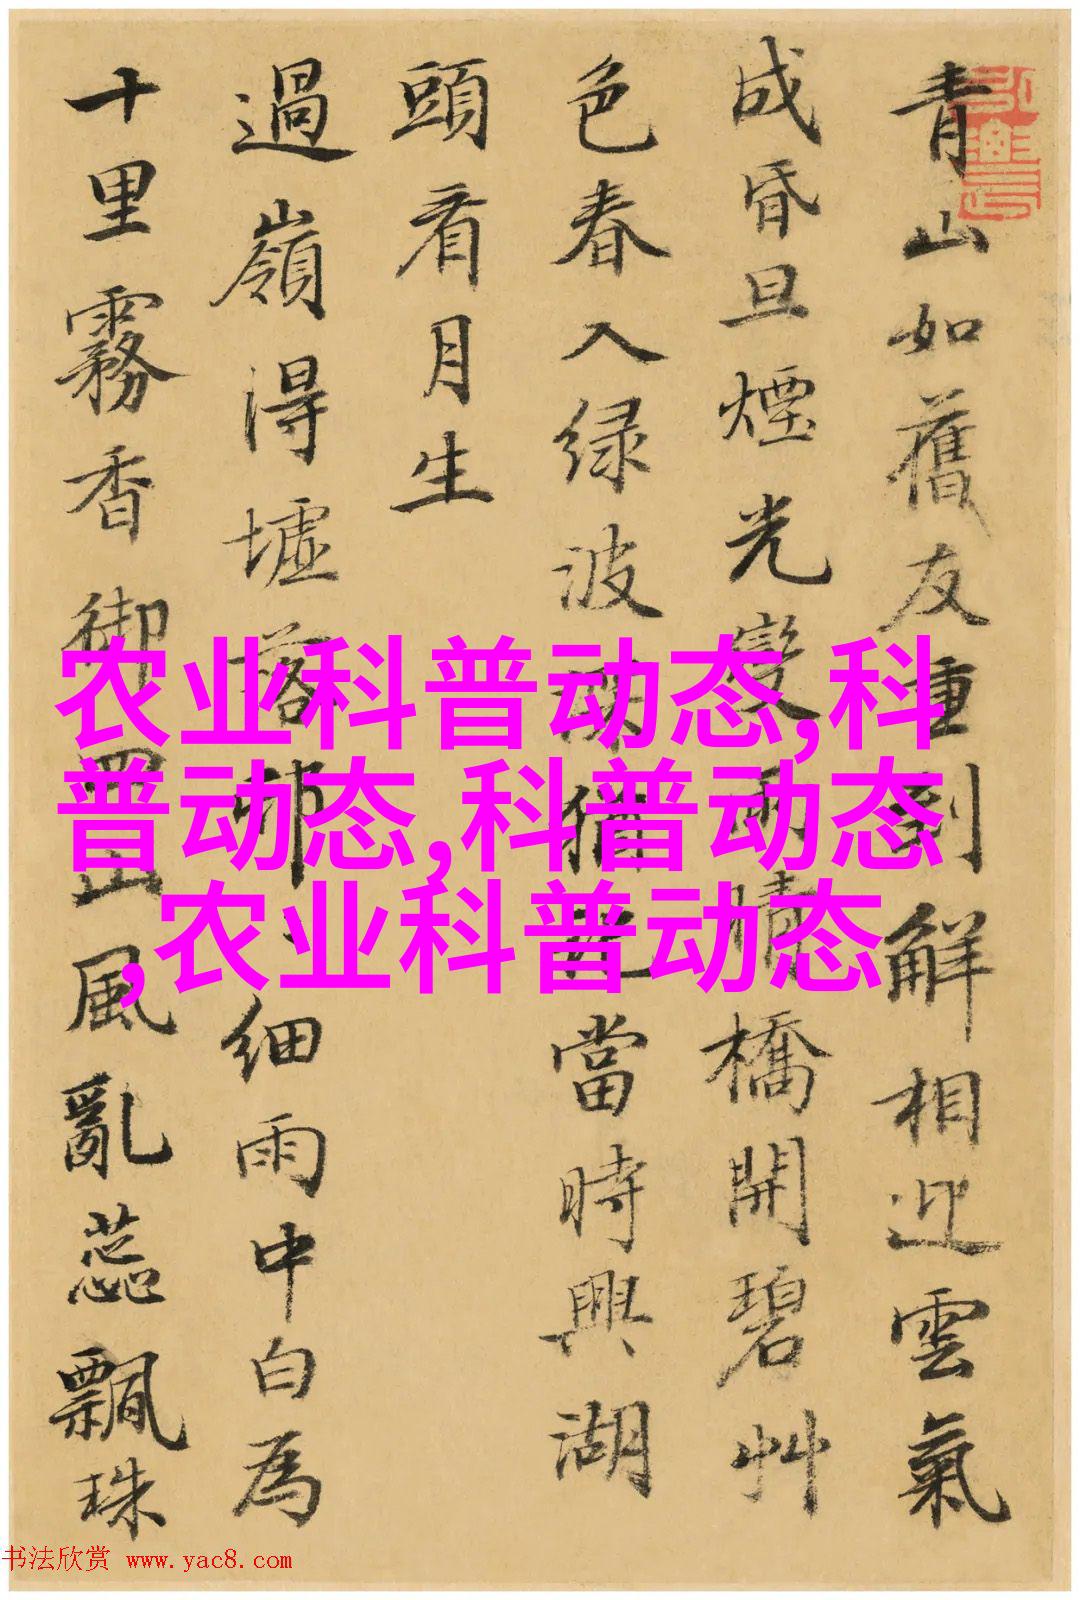 青山如舊友重到解相迎雲氣
成昏旦煙光變雨晴橋開碧艸
色春入绿波當時興湖
頭看月生
過嶺得墟落細雨中白為
十里霧香御山風亂蕊飄珠
农业科普动态,科
普动态,科普动态
,农业科普动态
书法欣赏 www.yac8.com